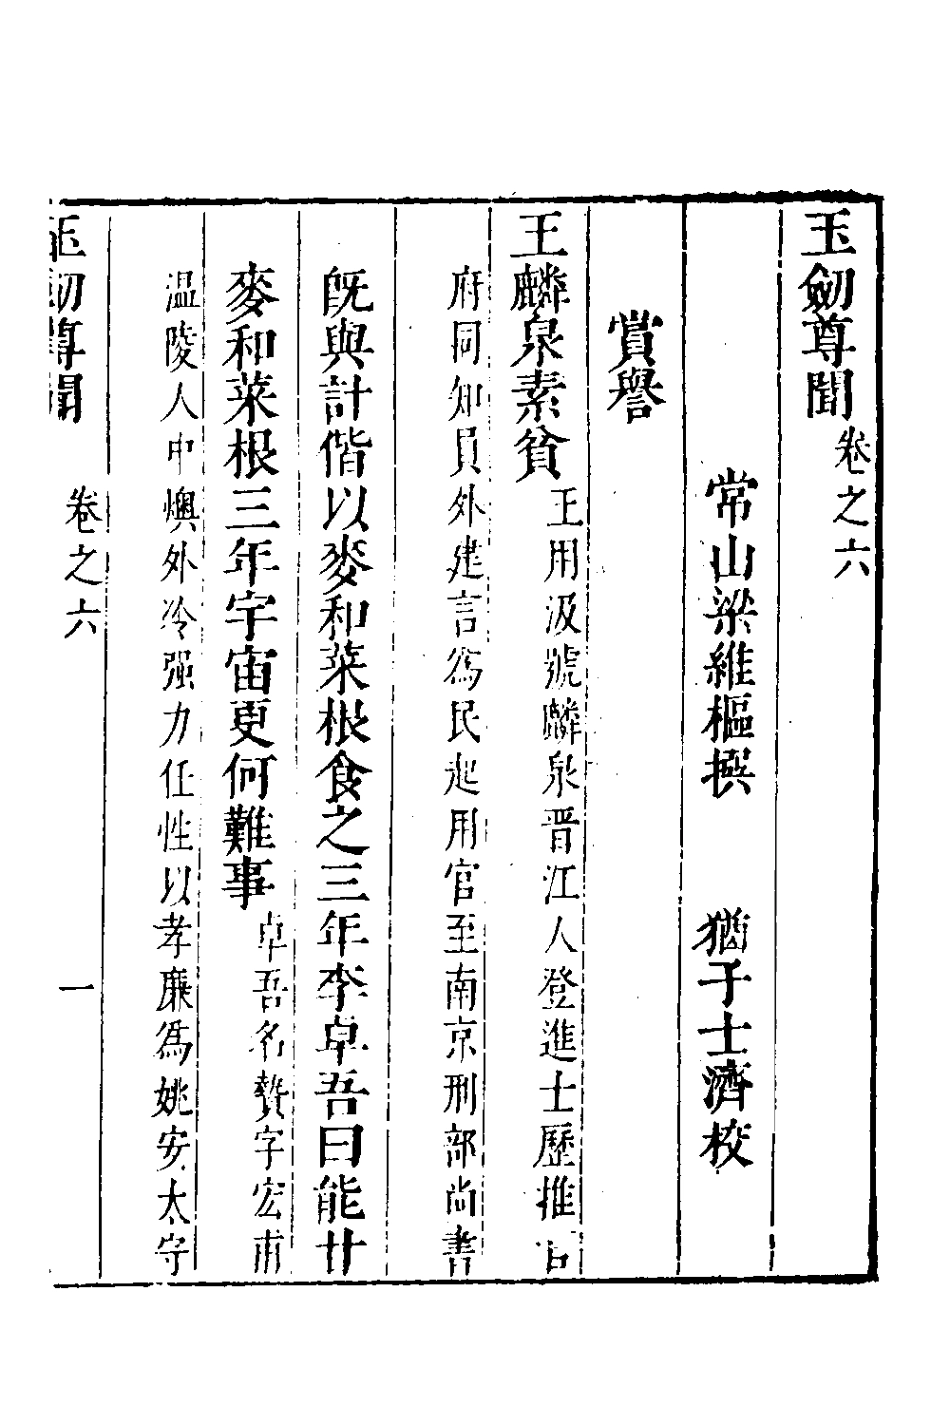 玉劒尊聞卷之六
常山梁維樞撰 猶子士濟校
賞譽
王麟泉素貧王用汲號麟泉晋江人登進士歷推官
府同知員外建言爲民起用官至南京刑部尚書
旣與計偕以麥和菜根食之三年李卓吾曰能廿
麥和菜根三年宇宙更何難事卓吾名贄字宏甫
温陵人中燠外冷强力任性以孝廉爲姚安太守
玉劒尊聞 卷之六 一